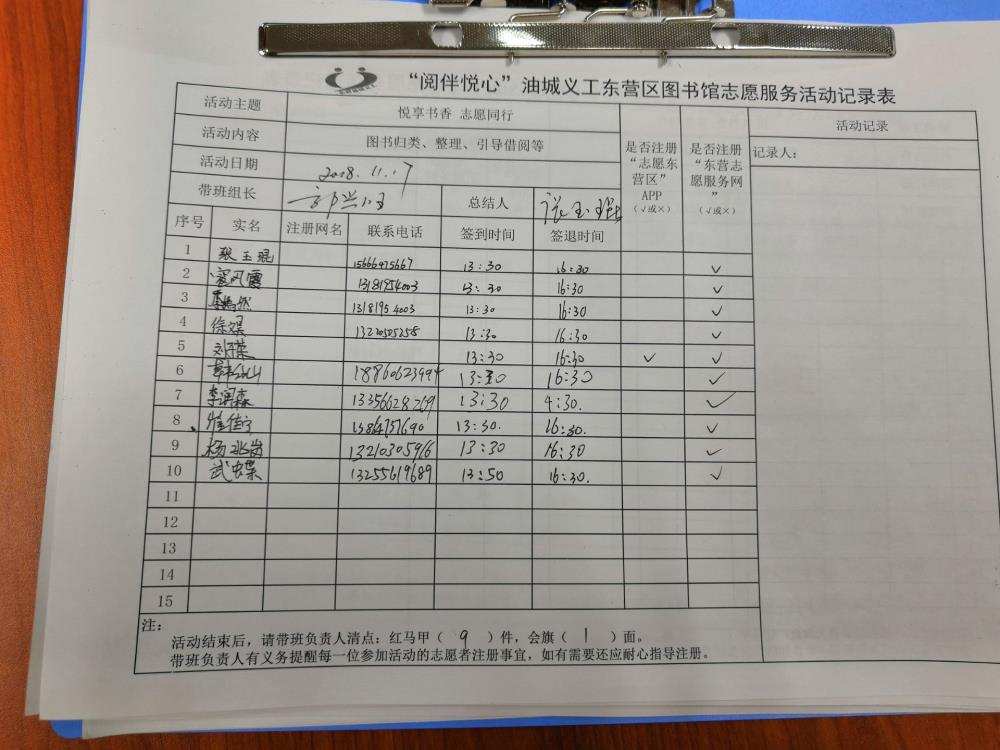 “阅伴悦心”油城义工东营区图书馆志愿服务活动记录表
活动主题 悦享书香 志愿同行
活动内容 图书归类、整理、引导借阅等
活动日期 2018.11.17
带班组长 总结人 张玉琨
序号 实名 注册网名 联系电话 签到时间 签退时间 是否注册“志愿东营区”APP(√或×) 是否注册“东营志愿服务网”(√或×)
活动记录
记录人:
1 张玉琨 15666975667 13:30 16:30 √
2 13181954003 13:30 16:30 √
3 13181954003 13:30 16:30 √
4 13220505258 13:30 16:30 √
5 13:30 16:30 √ √
6 18860623994 13:30 16:30 √
7 李润森 13356628269 13:30 4:30. √
8 崔佳宁 13864757690 13:30. 16:30. √
9 杨兆岗 13210305916 13:30 16:30 √
10 武忠棠 13255619689 13:50 16:30. √
11
12
13
14
15
注:
活动结束后，请带班负责人清点：红马甲（ 9 ）件，会旗（ 1 ）面。
带班负责人有义务提醒每一位参加活动的志愿者注册事宜，如有需要还应耐心指导注册。